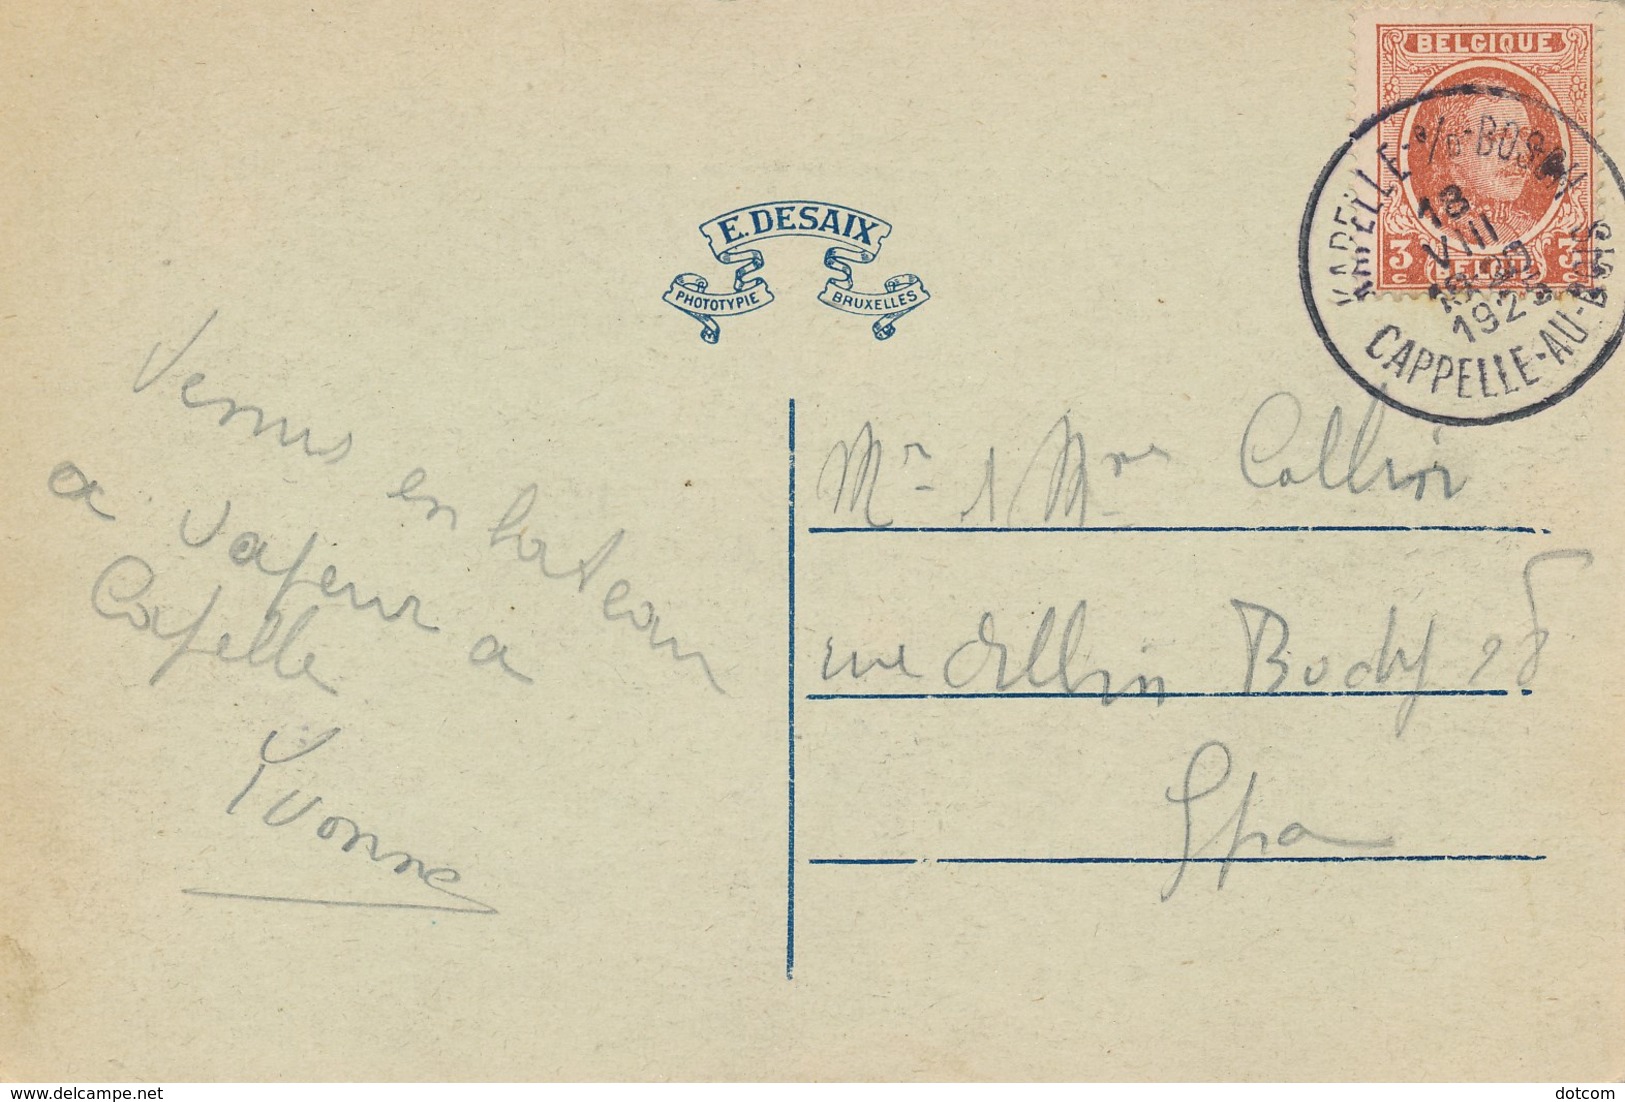 BELGIQUE
3 c
BELGIË
3 c
KAPELLE-o/d-BOSCH
18
VIII
1923
CAPPELLE-AU-BOIS
E. DESAIX
PHOTOTYPIE
BRUXELLES
Venus en bateau
a vapeur a
Capelle
Yvonne
Mr Mme Collin
rue Albin Body 28
Spa
delcampe.net
dotcom